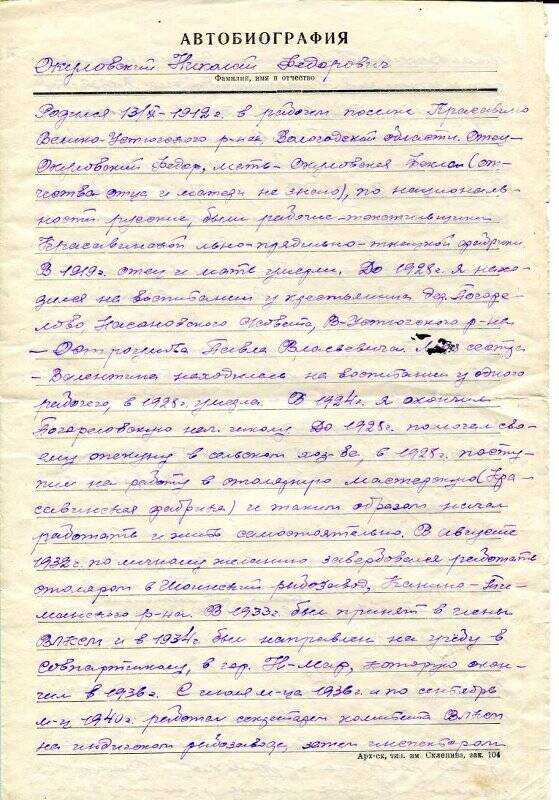 АВТОБИОГРАФИЯ
Окуловский Николай Федорович
Фамилия, имя и отчество
Родился 13/X-1912 г. в рабочем поселке Красавино
Велико-Устюгского р-на, Вологодской области. Отец
Окуловский Федор, мать - Окуловская Фекла (от-
чества отца и матери не знаю), по националь-
ности русские, были рабочие-текстильщики
Красавинской льно-прядильно-ткацкой фабрики.
В 1919 г. отец и мать умерли. До 1928 г. я нахо-
дился на воспитании у крестьянина дер. Погоре-
лово, В-Устюгского р-на
- Павла Власьевича. сестра
- Валентина находилась на воспитании у одного
рабочего, в 1928 г. умерла. В 1924 г. я окончил
Погореловскую нач. школу. До 1928 г. помогал сво-
ему опекуну в сельском хоз-ве, в 1928 г. посту-
пил на работу в столярную мастерскую (Кра-
савинская фабрика) и таким образом начал
работать и жить самостоятельно. В августе
1932 г. по личному желанию завербовался работать
столяром в рыбозавод, Канино-Ти-
манского р-на. В 1933 г. был принят в члены
ВЛКСМ и в 1934 г. был направлен на учебу в
Совпартшколу, в гор. Н-Мар, которую окон-
чил в 1936 г. С июля м-ца 1936 г. и по сентябрь
м-ц 1940 г. работал секретарем комитета ВЛКСМ
на индигском рыбозаводе, затем инспектором
Арх-ск, тип. им. Склепина, зак. 104